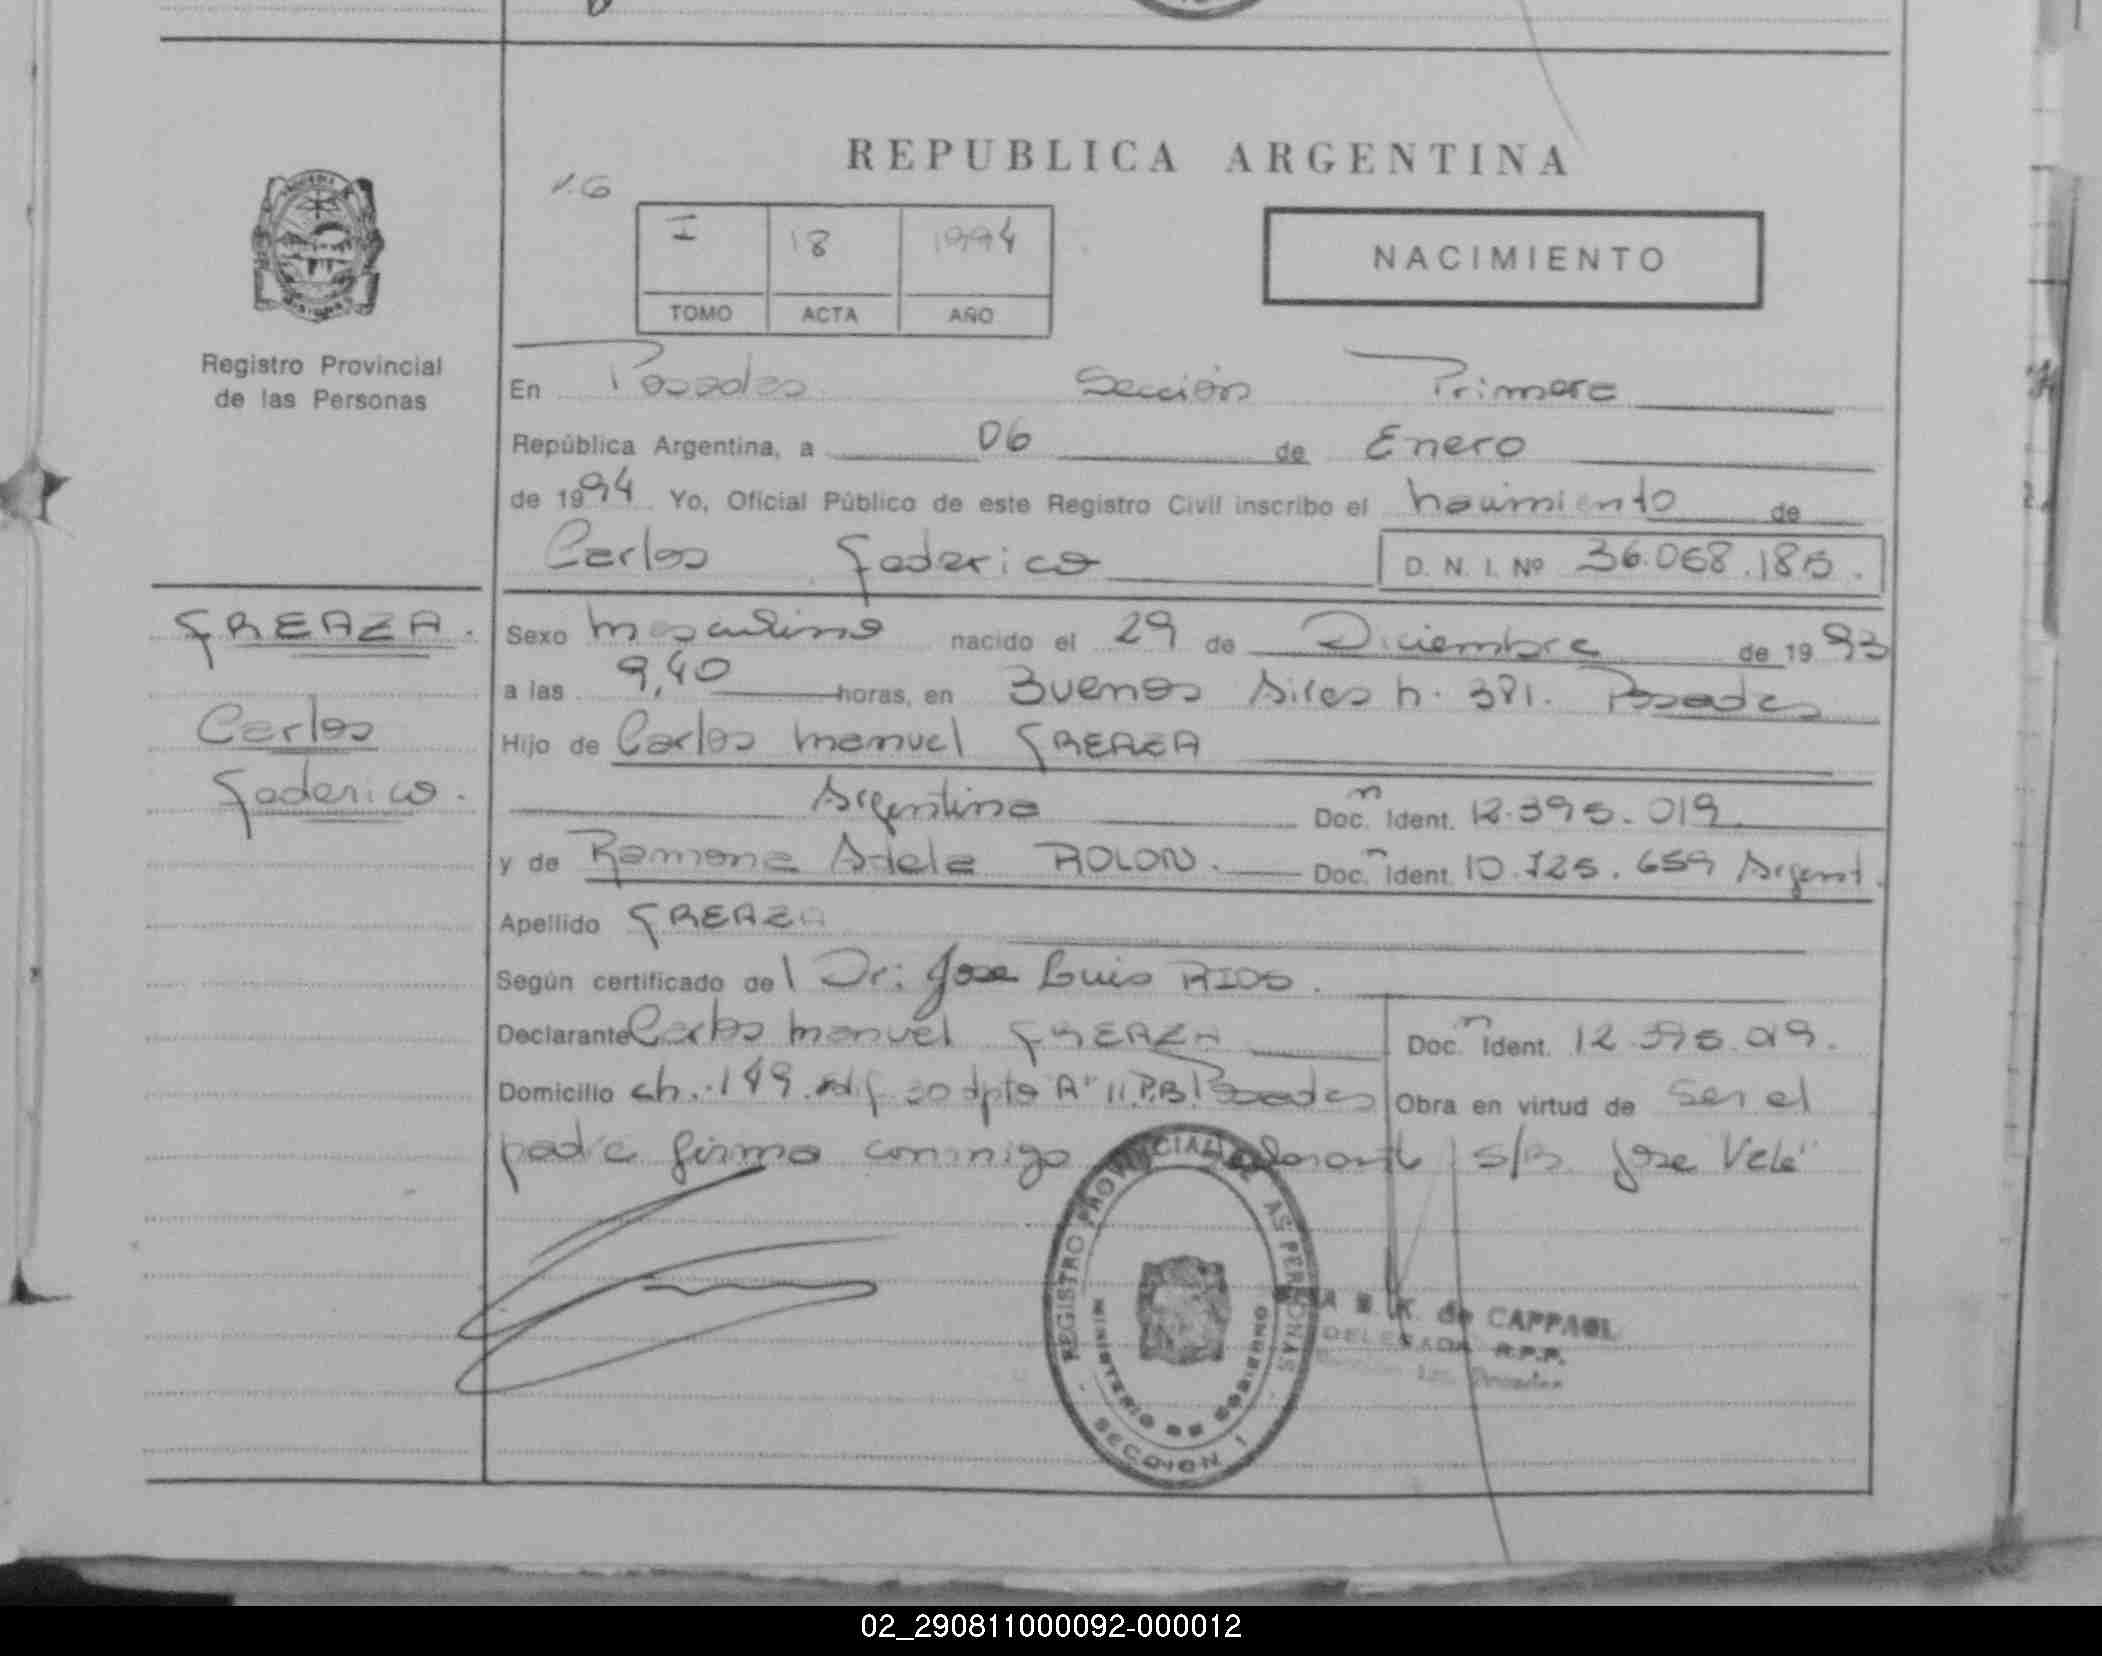 REPUBLICA ARGENTINA
I 18 1994
TOMO ACTA AÑO
NACIMIENTO
Registro Provincial
de las Personas
En Posadas Sección Primera
República Argentina, a 06 de Enero
de 1994 Yo, Oficial Público de este Registro Civil inscribo el nacimiento de
Carlos Federico D. N. I. Nº 36.068.185.
GREAZA.
Carlos
Federico.
Sexo Masculino nacido el 29 de Diciembre de 1993
a las 9,40 horas, en Buenos Aires n. 381. Posadas
Hijo de Carlos Manuel GREAZA
Argentino Docn Ident. 12.395.019
y de Ramona Adela ROLON. Docn Ident. 10.725.659 Argent.
Apellido GREAZA
Según certificado del Dr: Jose Luis RIOS.
Declarante Carlos Manuel GREAZA Docn Ident. 12.395.019.
Domicilio ch. 149 edif 30 dpto "A" P.B. Posadas Obra en virtud de ser el
padre firma conmigo s/B. Jose Vele
REGISTRO PROVINCIAL DE LAS PERSONAS
MINISTERIO DE GOBIERNO
SECCION 1
K. de CAPPAGL
DELEGADA R.P.P.
02_290811000092-000012